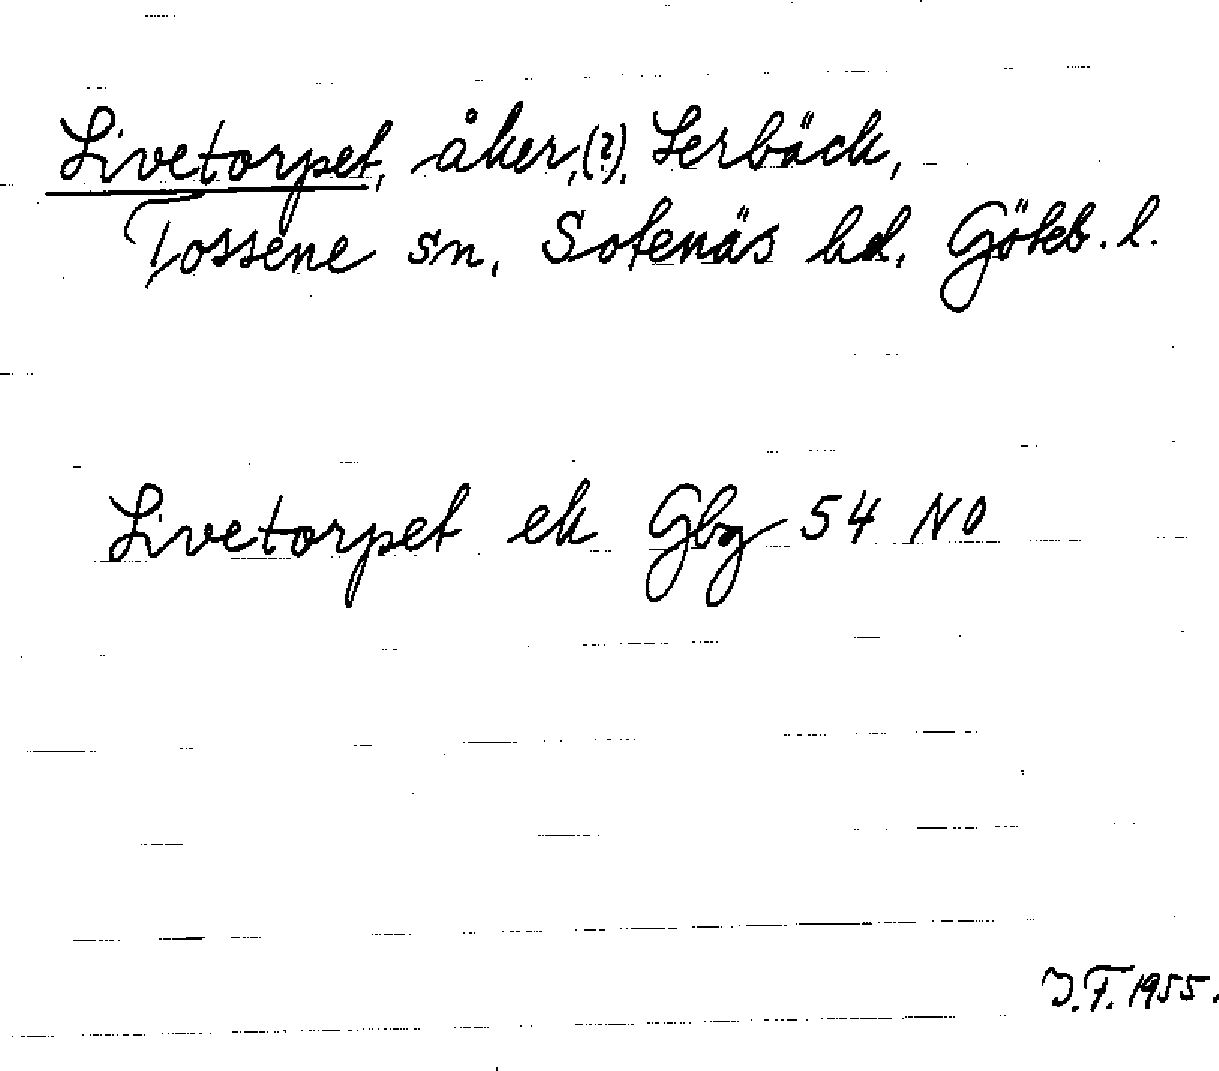 Livetorpet, åker,(?), Lerbäck,
Tossene sn, Sotenäs hd, Göteb. l.
Livetorpet ek Gbg 54 NO
J.F. 1955.